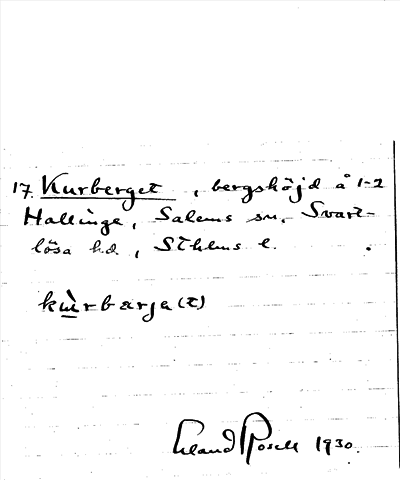 17. Kurberget, bergshöjd å 1-2
Hallinge, Salems sn, Svart-
lösa hd., Sthlms l.
kùrbærja(t)
Erland Rosell 1930.